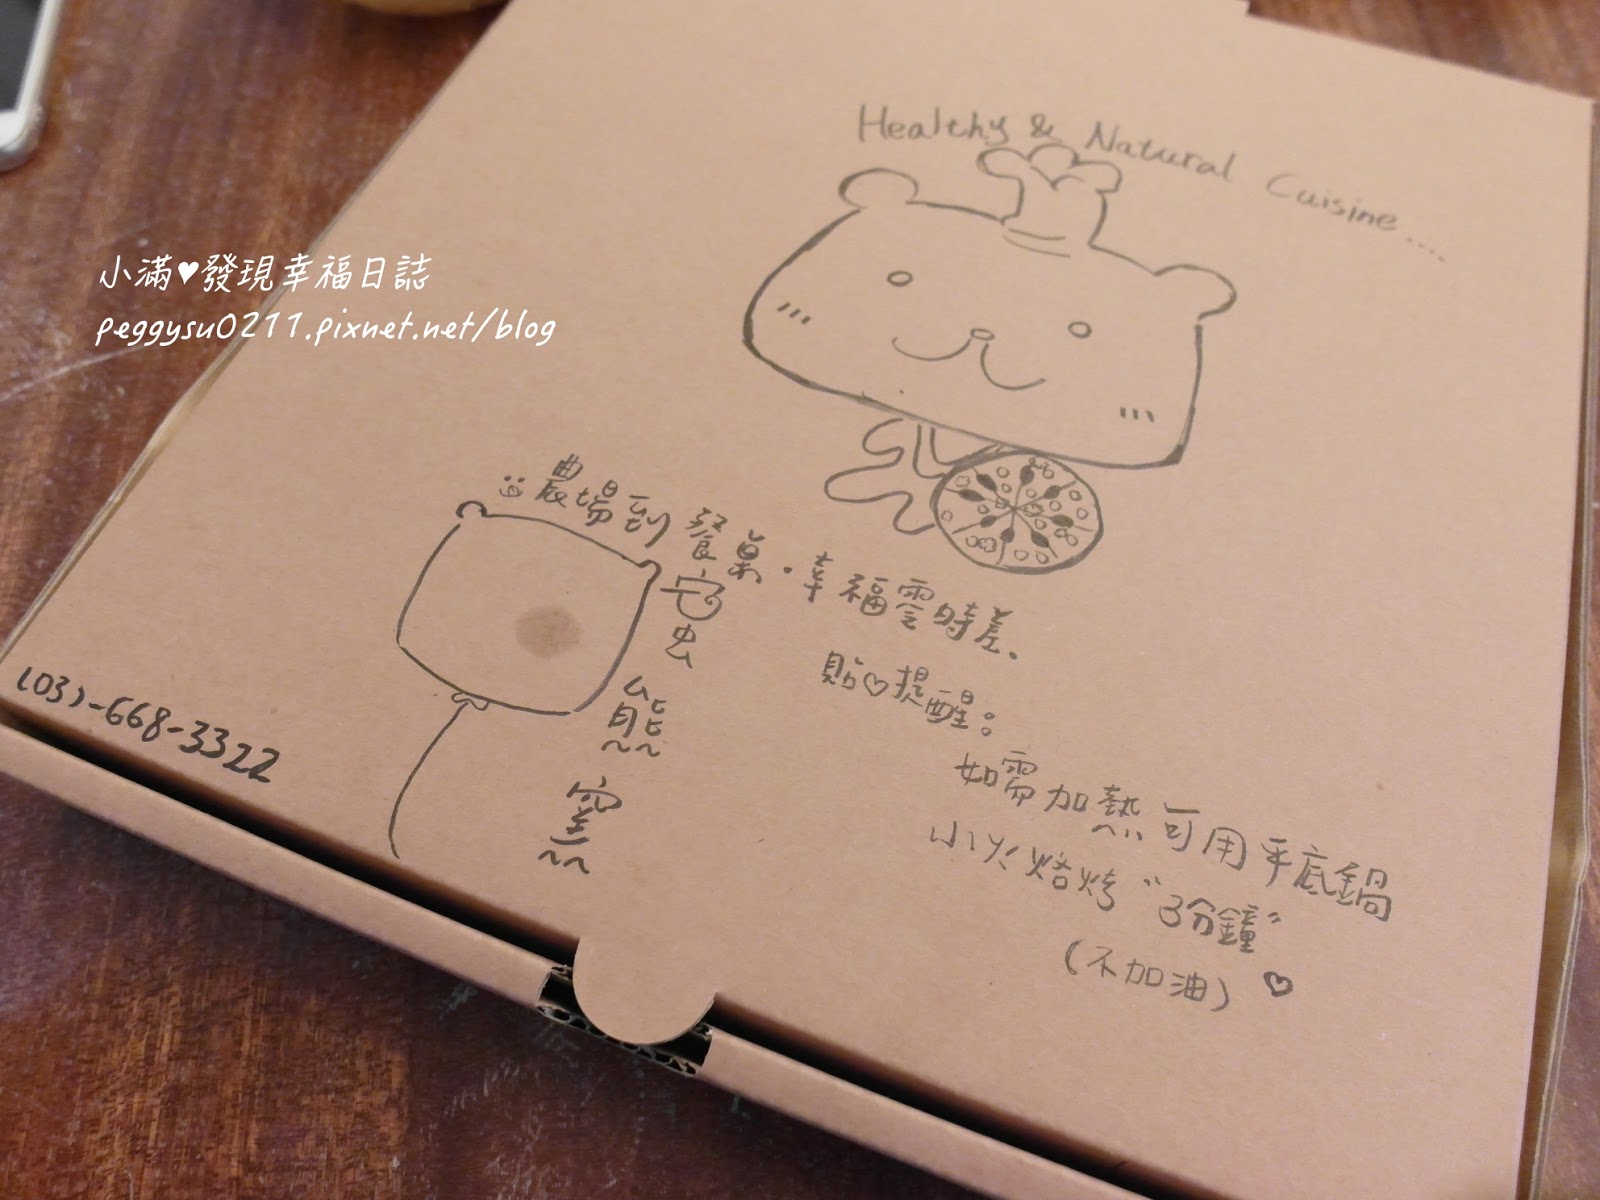 Healthy & Natural Cuisine....
小滿♥發現幸福日誌
peggysu0211.pixnet.net/blog
農場到餐桌．幸福零時差。
熊窯
(03)-668-3322
貼♡提醒：
如需加熱可用平底鍋
小火焙烤“3分鐘”
(不加油) ♡